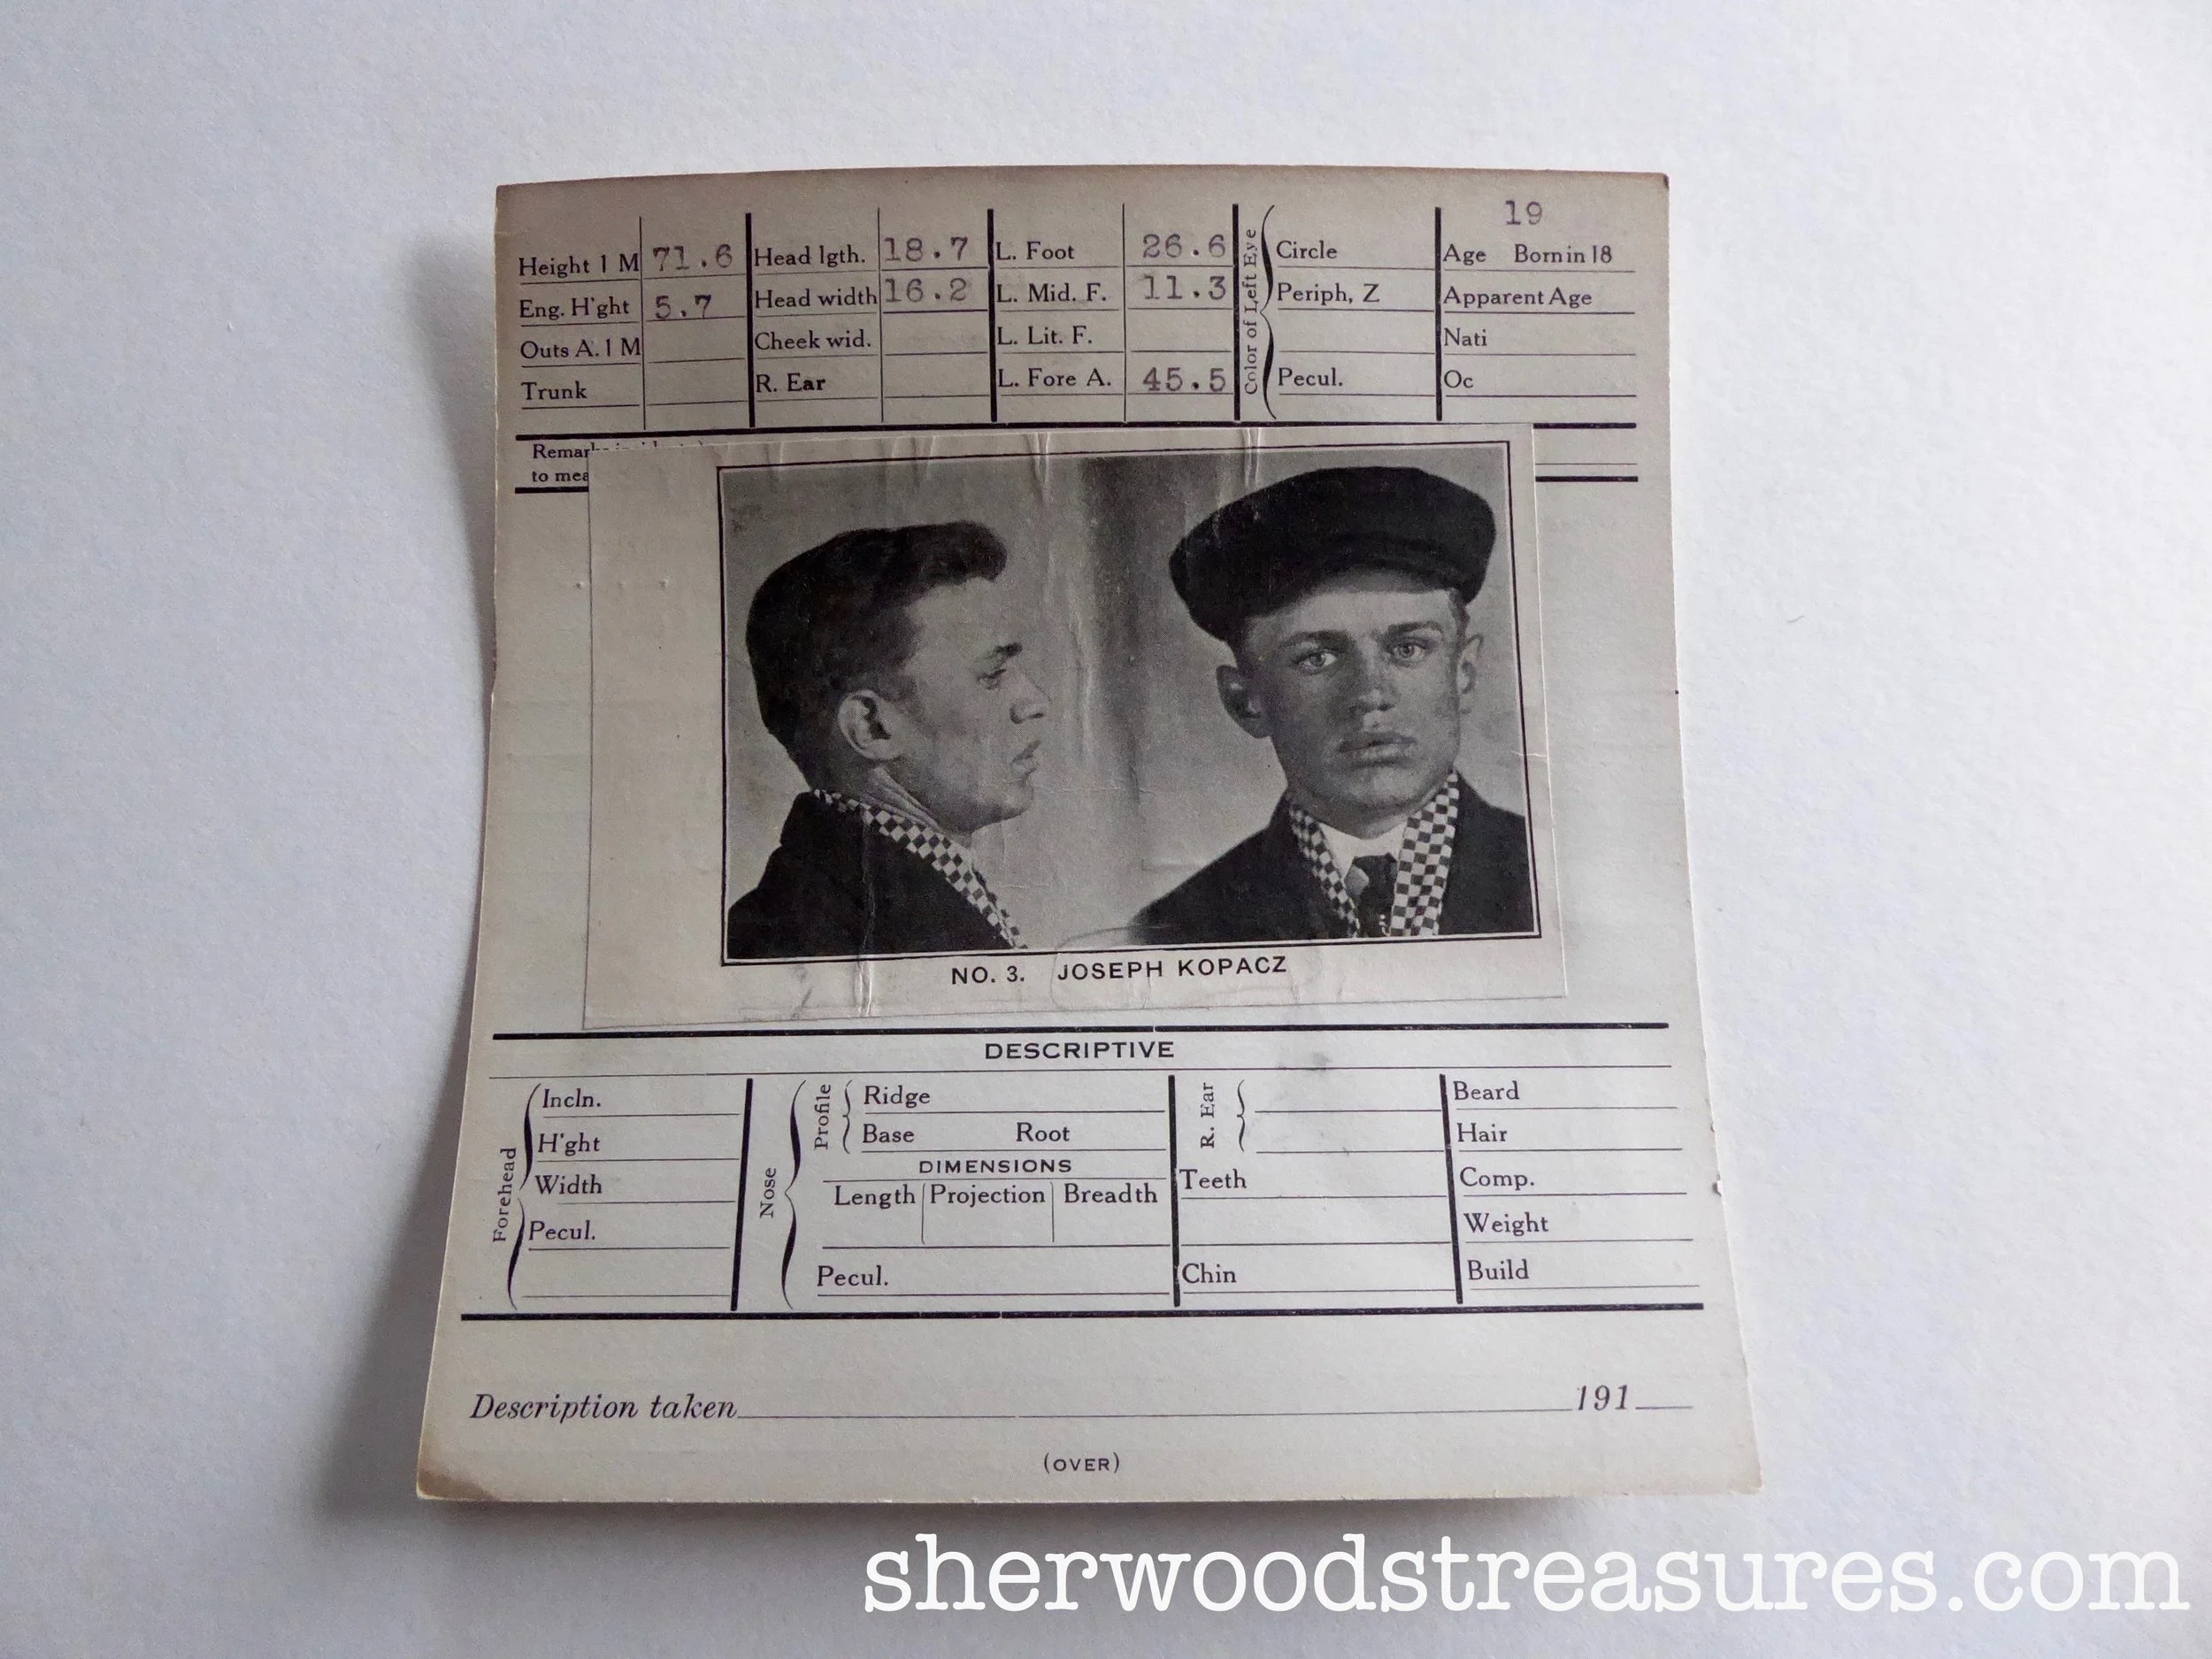 19
Height 1 M 71.6 Head lgth. 18.7 L. Foot 26.6 Circle Age Born in 18
Eng. H'ght 5.7 Head width 16.2 L. Mid. F. 11.3 Periph, Z Apparent Age
Outs A. 1 M Cheek wid. L. Lit. F. Nati
Trunk R. Ear L. Fore A. 45.5 Pecul. Oc
Color of Left Eye
to
NO. 3. JOSEPH KOPACZ
DESCRIPTIVE
Forehead
Incln.
H'ght
Width
Pecul.
Nose
Profile
Ridge
Base Root
DIMENSIONS
Length Projection Breadth
Pecul.
R. Ear
Teeth
Chin
Beard
Hair
Comp.
Weight
Build
Description taken 191
(OVER)
sherwoodstreasures.com